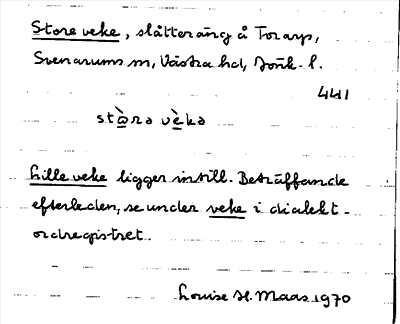 Store veke, slåtteräng å Torarp,
Svenarums sn, Västra hd, Jönk. l.
441
stòra vèka
Lille veke ligger intill. Beträffande
efterleden, se under veke i dialekt-
ordregistret.
Louise H. Maas 1970